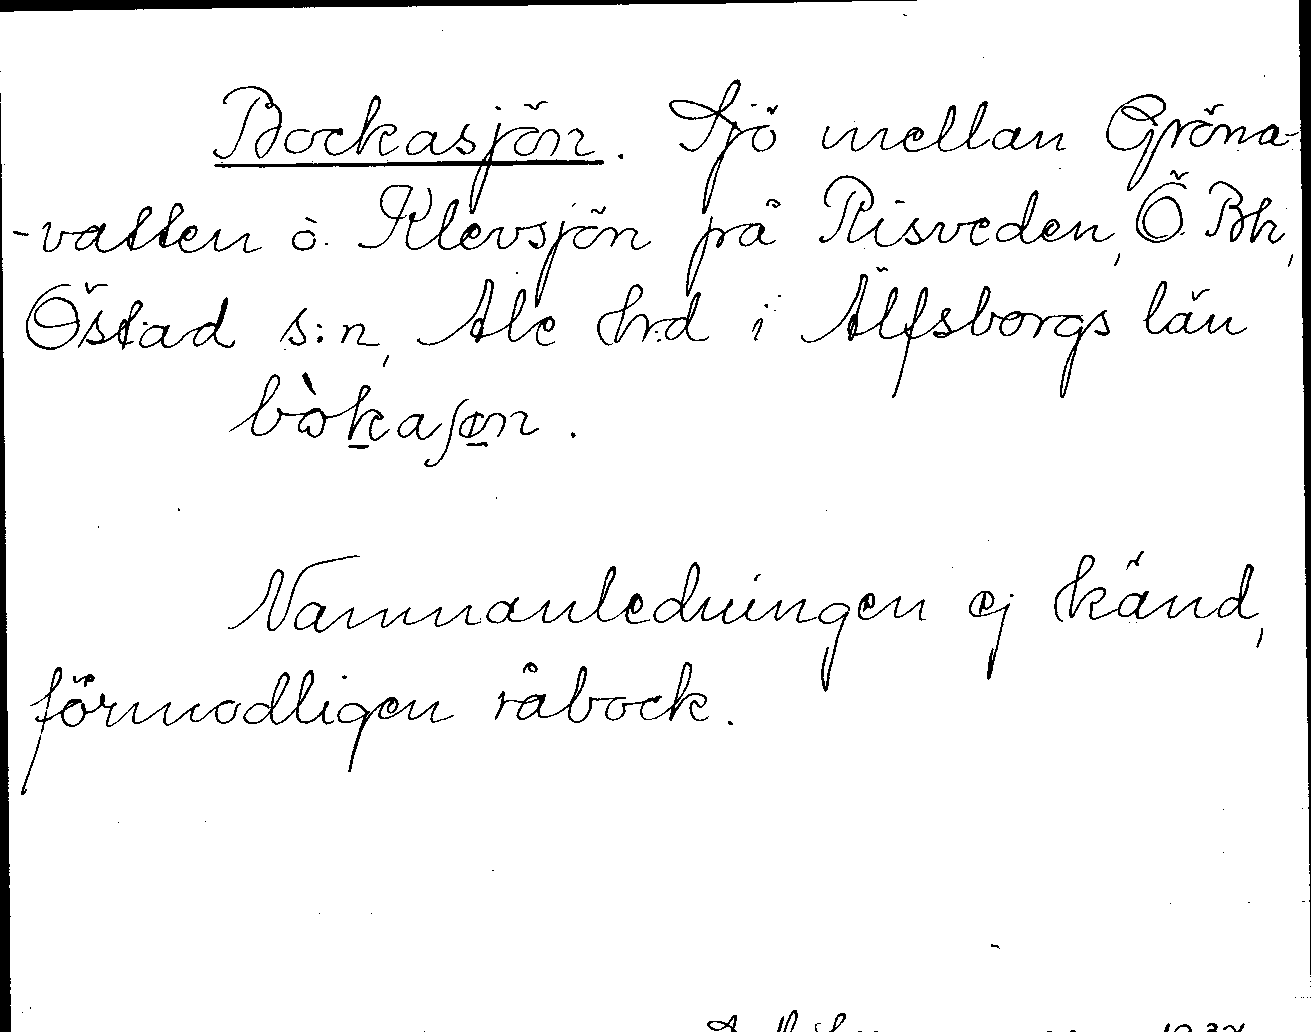 Bockasjön. Sjö mellan Gröna-
-vatten ò. Klevsjön på Risveden, Ö. Bh,
Östad s:n, Ale hrd i Älfsborgs län
bòkaʃən.
Namnanledningen ej känd,
förmodligen råbock.